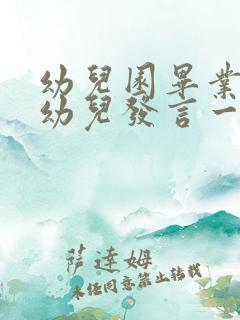 幼兒園畢業
幼兒發言一
薩達姆
未經同意禁止轉載